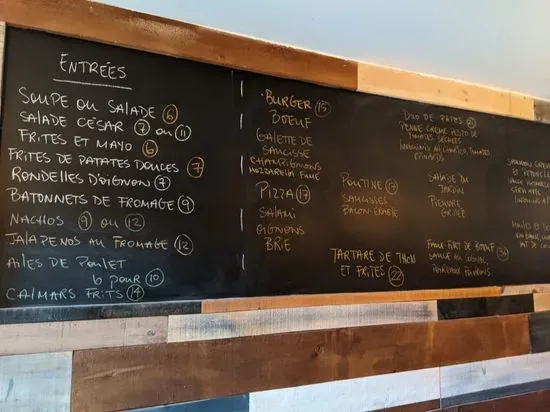 ENTRÉES
SOUPE OU SALADE 6
SALADE CÉSAR 7 OU 11
FRITES ET MAYO 6
FRITES DE PATATES DOUCES 7
RONDELLES D'OIGNON 7
BATONNETS DE FROMAGE 9
NACHOS 9 OU 12
JALAPENOS AU FROMAGE 12
AILES DE POULET
6 POUR 10
CALMARS FRITS 14
BURGER 15
BOEUF
GALETTE DE
SAUCISSE
CHAMPIGNONS
MOZZARELLA FUMÉ
PIZZA 17
SALAMI
OIGNONS
BRIE
DUO DE PATES
PENNE CRÈME PESTO DE
TOMATES SÉCHÉES
TOMATES
POUTINE 17
SAUCISSES
BACON-ÉRABLE
SALADE DU
JARDIN
PIEUVRE
GRILLÉE
TARTARE DE THON
ET FRITES 22
FAUX-FILET DE BOEUF
SAUCE AU
SAUMON